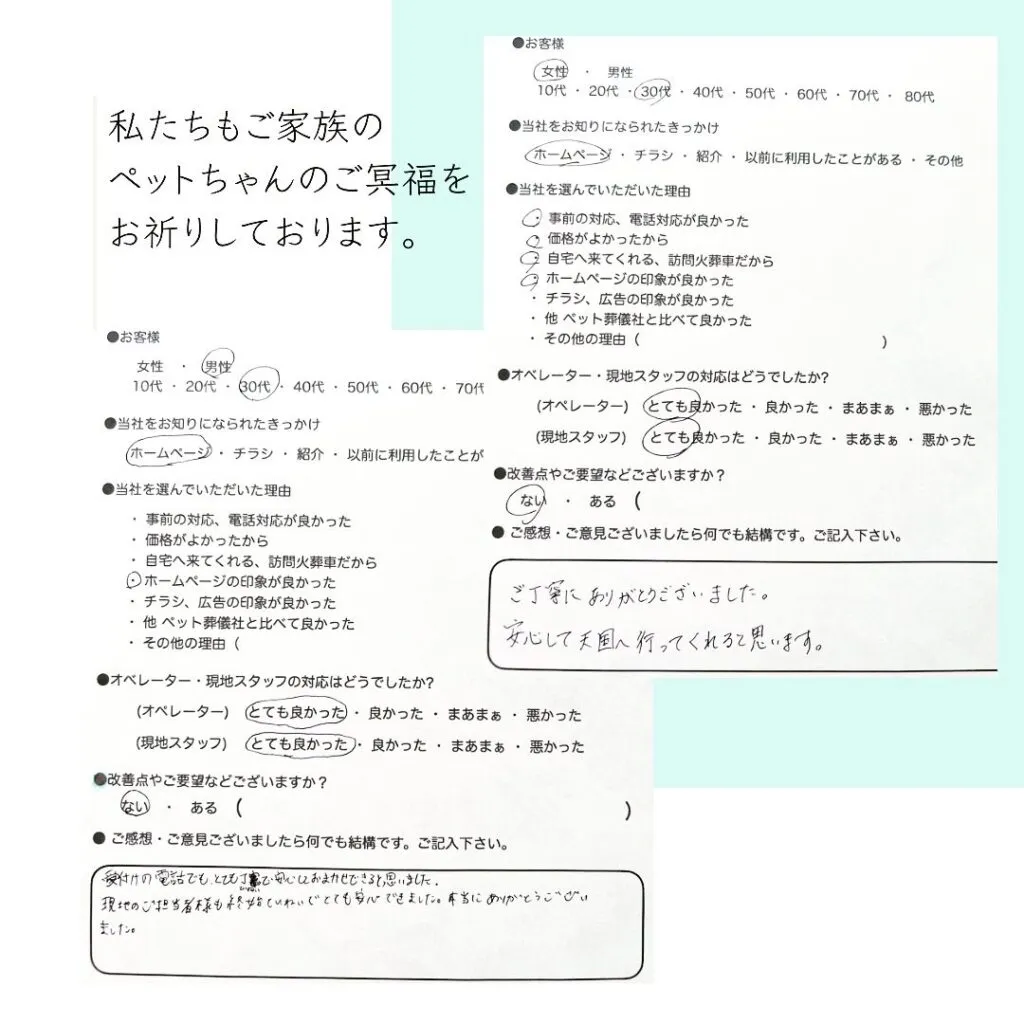 私たちもご家族の
ペットちゃんのご冥福を
お祈りしております。
●お客様
女性 ・ 男性
10代 ・ 20代 ・ 30代 ・ 40代 ・ 50代 ・ 60代 ・ 70代 ・ 80代
●当社をお知りになられたきっかけ
ホームページ ・ チラシ ・ 紹介 ・ 以前に利用したことがある ・ その他
●当社を選んでいただいた理由
・ 事前の対応、電話対応が良かった
・ 価格がよかったから
・ 自宅へ来てくれる、訪問火葬車だから
・ ホームページの印象が良かった
・ チラシ、広告の印象が良かった
・ 他 ペット葬儀社と比べて良かった
・ その他の理由 ( )
●オペレーター・現地スタッフの対応はどうでしたか?
(オペレーター) とても良かった ・ 良かった ・ まあまぁ ・ 悪かった
(現地スタッフ) とても良かった ・ 良かった ・ まあまぁ ・ 悪かった
●改善点やご要望などございますか?
ない ・ ある (
● ご感想・ご意見ございましたら何でも結構です。ご記入下さい。
ご丁寧にありがとうございました。
安心して天国へ行ってくれると思います。
●お客様
女性 ・ 男性
10代 ・ 20代 ・ 30代 ・ 40代 ・ 50代 ・ 60代 ・ 70代
●当社をお知りになられたきっかけ
ホームページ ・ チラシ ・ 紹介 ・ 以前に利用したことが
●当社を選んでいただいた理由
・ 事前の対応、電話対応が良かった
・ 価格がよかったから
・ 自宅へ来てくれる、訪問火葬車だから
・ ホームページの印象が良かった
・ チラシ、広告の印象が良かった
・ 他 ペット葬儀社と比べて良かった
・ その他の理由 (
●オペレーター・現地スタッフの対応はどうでしたか?
(オペレーター) とても良かった ・ 良かった ・ まあまぁ ・ 悪かった
(現地スタッフ) とても良かった ・ 良かった ・ まあまぁ ・ 悪かった
●改善点やご要望などございますか?
ない ・ ある ( )
● ご感想・ご意見ございましたら何でも結構です。ご記入下さい。
受付けの電話でも、とても丁寧で安心しておまかせできると思いました。
現地のご担当者様も終始ていねいでとても安心できました。本当にありがとうござい
ました。